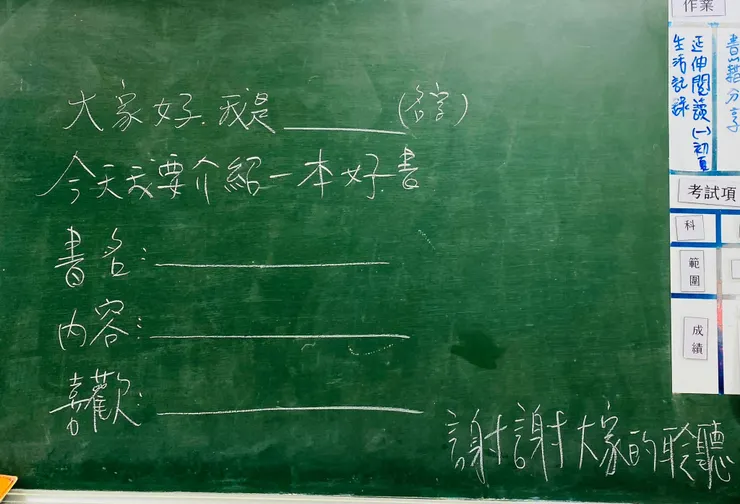 大家好.我是______(名字)
今天我要介紹一本好書
書名:__________
內容:__________
喜歡:__________
謝謝大家的聆聽
作業
書籍分享
延伸閱讀(一)初頁
生活記錄
考試項
科
範圍
成績